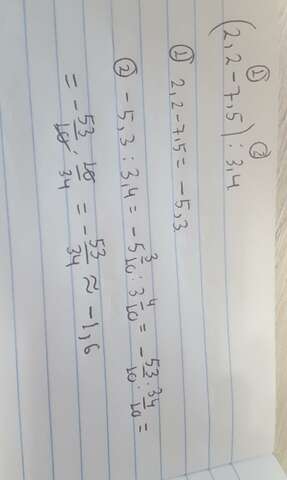 ① ②
(2,2 - 7,5) : 3,4
① 2,2 - 7,5 = - 5,3
② - 5,3 : 3,4 = - 5 3/10 : 3 4/10 = - 53/10 : 34/10 =
= - 53/10 · 10/34 = - 53/34 ≈ - 1,6